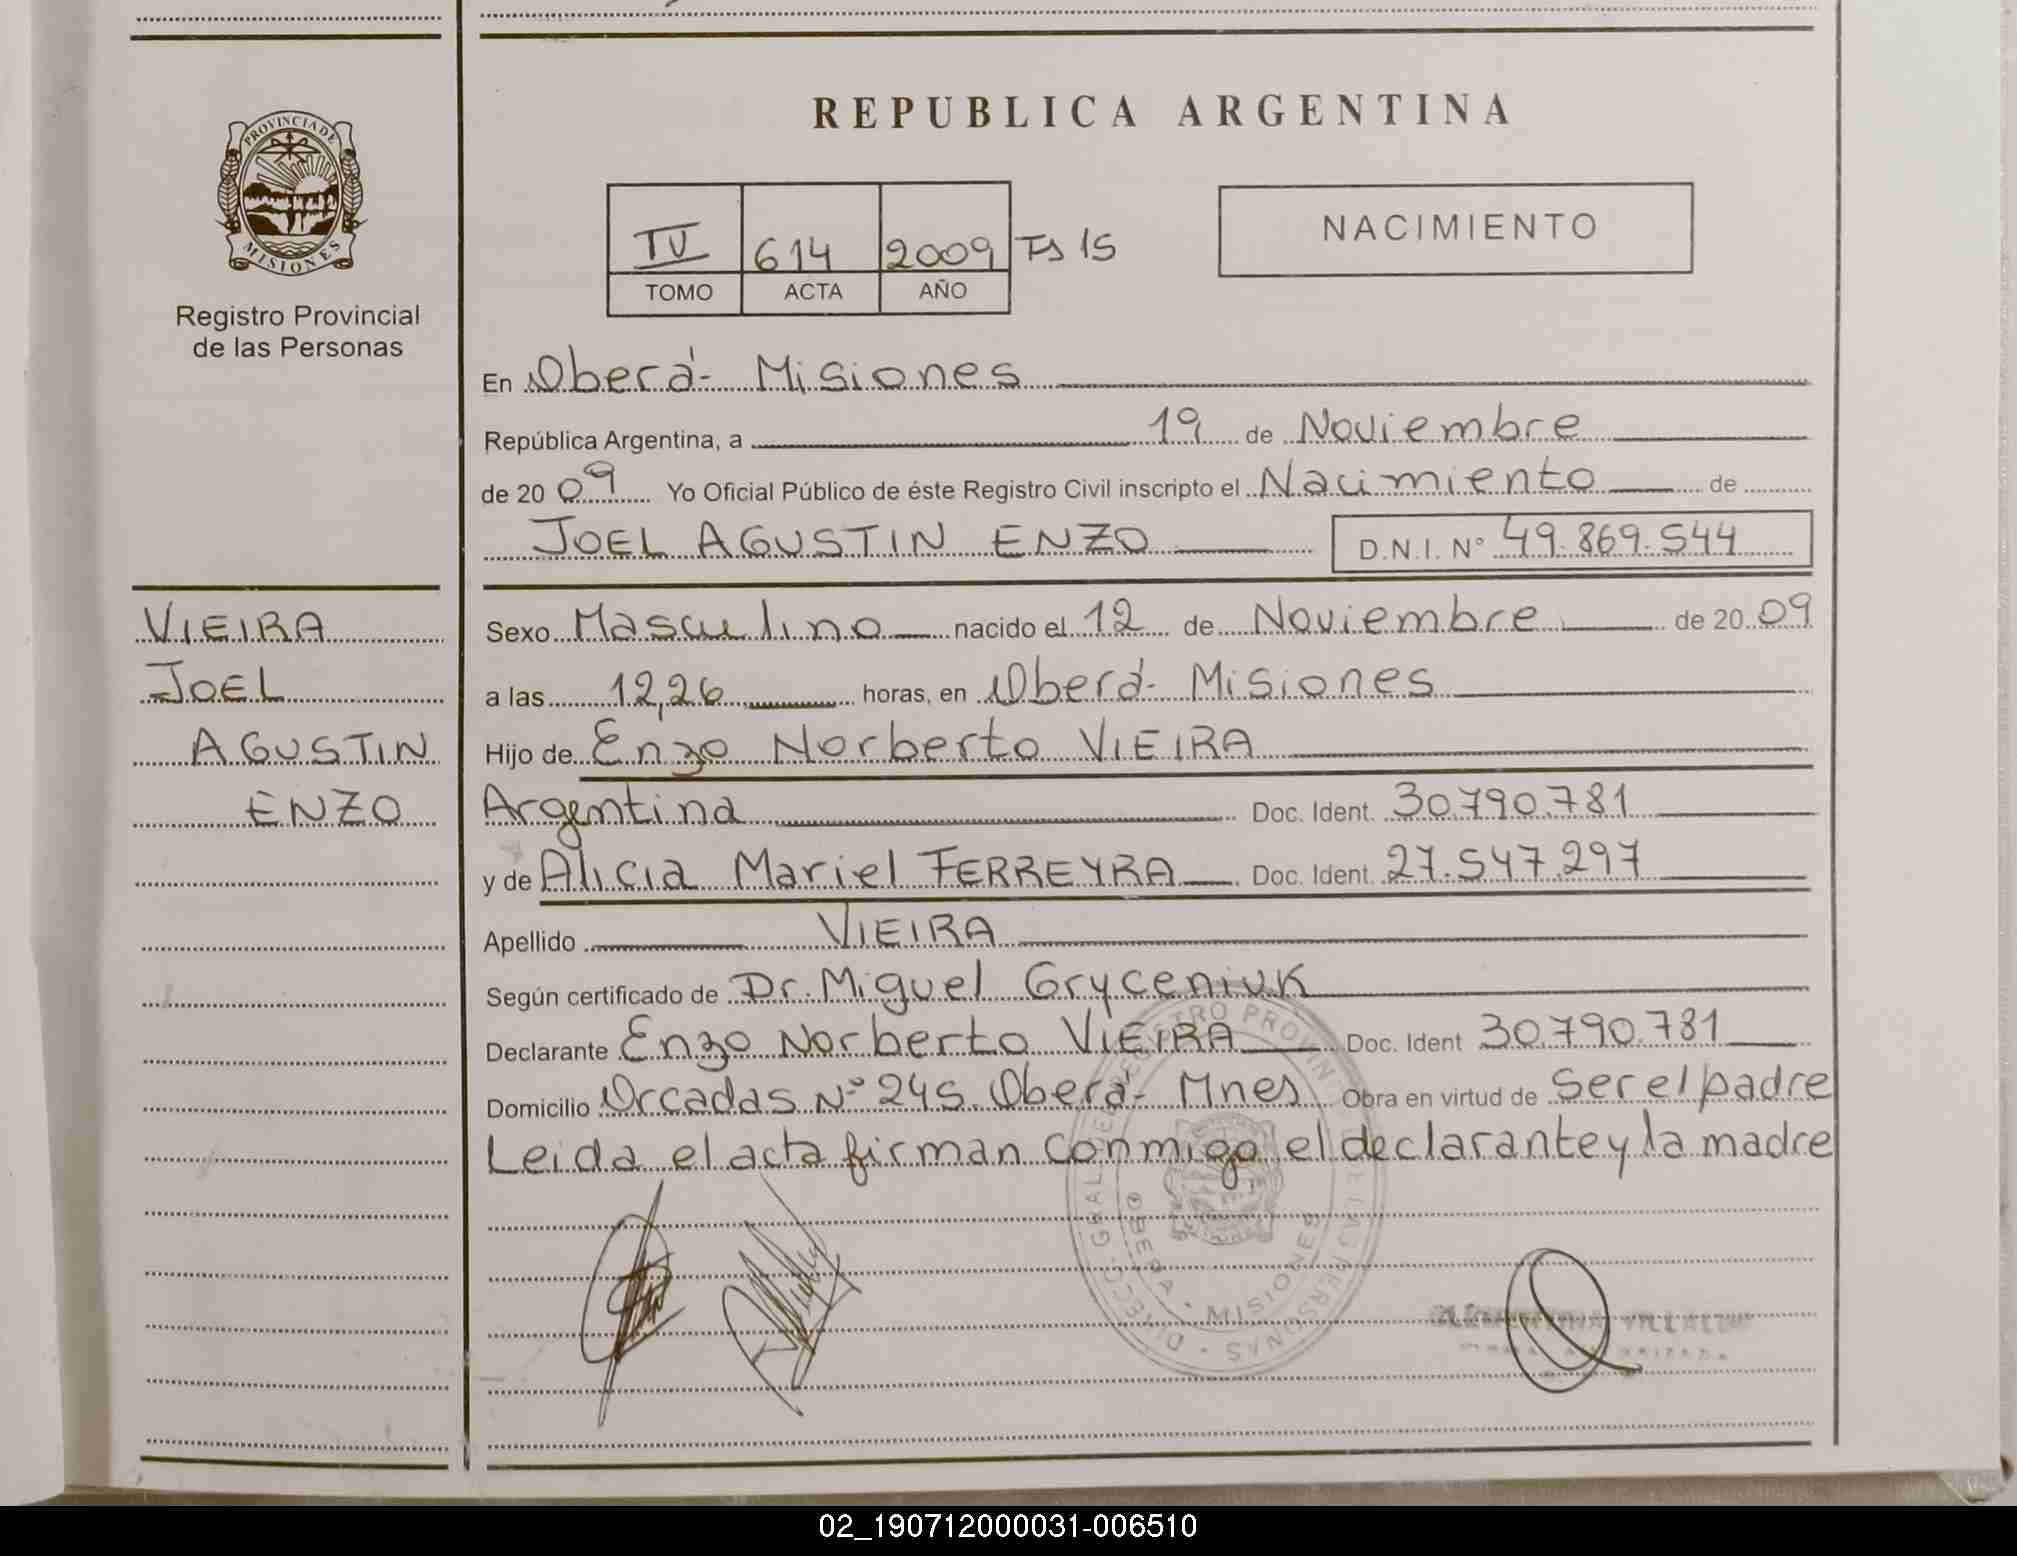 REPUBLICA ARGENTINA
PROVINCIA DE
MISIONES
Registro Provincial
de las Personas
IV 614 2009 Fs 15
TOMO ACTA AÑO
NACIMIENTO
En Oberá - Misiones
República Argentina, a 19 de Noviembre
de 20 09 Yo Oficial Público de éste Registro Civil inscripto el Nacimiento de
JOEL AGUSTIN ENZO D.N.I. N° 49.869.544
VIEIRA
JOEL
AGUSTIN
ENZO
Sexo Masculino nacido el 12 de Noviembre de 20 09
a las 12,26 horas, en Oberá - Misiones
Hijo de Enzo Norberto VIEIRA
Argentina Doc. Ident. 30.790.781
y de Alicia Mariel FERREYRA Doc. Ident. 27.547.297
Apellido VIEIRA
Según certificado de Dr. Miguel Gryceniuk
Declarante Enzo Norberto VIEIRA Doc. Ident 30.790.781
Domicilio Orcadas N° 245 Oberá - Mnes Obra en virtud de ser el padre
Leida el acta firman conmigo el declarante y la madre
DIRECC. GRAL. DEL REGISTRO PROVINCIAL DE LAS PERSONAS
OBERA - MISIONES
02_190712000031-006510